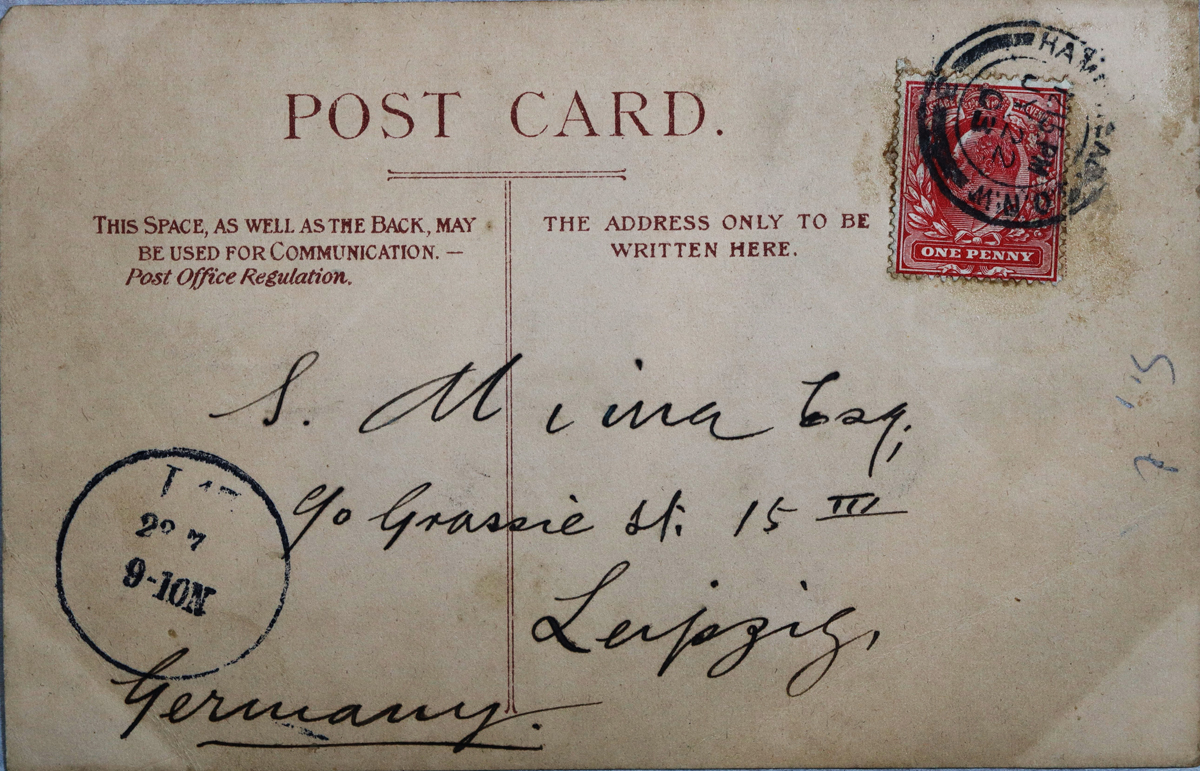 POST CARD.
THIS SPACE, AS WELL AS THE BACK, MAY
BE USED FOR COMMUNICATION. —
Post Office Regulation.
THE ADDRESS ONLY TO BE
WRITTEN HERE.
ONE PENNY
PM
22
N.W.
S. Mina Esq,
c/o Grassie St. 15 III
Leipzig,
Germany.
9-10N